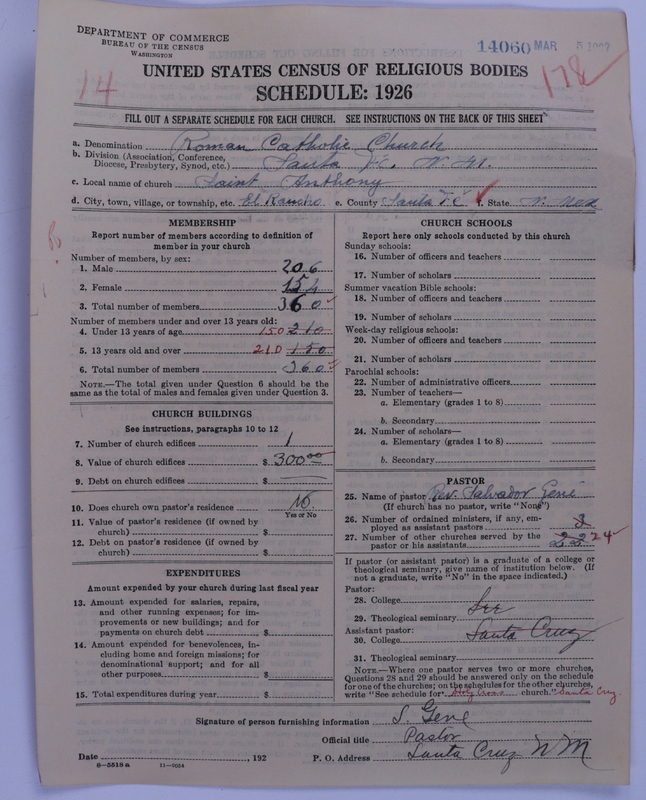 DEPARTMENT OF COMMERCE
BUREAU OF THE CENSUS
WASHINGTON
14060 MAR 5 1927
14
178
UNITED STATES CENSUS OF RELIGIOUS BODIES
SCHEDULE: 1926
FILL OUT A SEPARATE SCHEDULE FOR EACH CHURCH. SEE INSTRUCTIONS ON THE BACK OF THIS SHEET
a. Denomination Roman Catholic Church
b. Division (Association, Conference,
Diocese, Presbytery, Synod, etc.) Santa Fe. N. M.
c. Local name of church Saint Anthony
d. City, town, village, or township, etc. El Rancho e. County Santa Fe f. State N. Mex
MEMBERSHIP
Report number of members according to definition of
member in your church
Number of members, by sex:
1. Male 206
2. Female 154
3. Total number of members 360
Number of members under and over 13 years old:
4. Under 13 years of age 150 210
5. 13 years old and over 210 150
6. Total number of members 360
NOTE.—The total given under Question 6 should be the
same as the total of males and females given under Question 3.
CHURCH BUILDINGS
See instructions, paragraphs 10 to 12
7. Number of church edifices 1
8. Value of church edifices $ 300.00
9. Debt on church edifices $
10. Does church own pastor's residence No.
Yes or No
11. Value of pastor's residence (if owned by
church) $
12. Debt on pastor's residence (if owned by
church) $
EXPENDITURES
Amount expended by your church during last fiscal year
13. Amount expended for salaries, repairs,
and other running expenses; for im-
provements or new buildings; and for
payments on church debt $
14. Amount expended for benevolences, in-
cluding home and foreign missions; for
denominational support; and for all
other purposes $
15. Total expenditures during year $
CHURCH SCHOOLS
Report here only schools conducted by this church
Sunday schools:
16. Number of officers and teachers
17. Number of scholars
Summer vacation Bible schools:
18. Number of officers and teachers
19. Number of scholars
Week-day religious schools:
20. Number of officers and teachers
21. Number of scholars
Parochial schools:
22. Number of administrative officers
23. Number of teachers—
a. Elementary (grades 1 to 8)
b. Secondary
24. Number of scholars—
a. Elementary (grades 1 to 8)
b. Secondary
PASTOR
25. Name of pastor Rev. Salvador Gené
(If church has no pastor, write "None")
26. Number of ordained ministers, if any, em-
ployed as assistant pastors 3
27. Number of other churches served by the
pastor or his assistants 22 24
If pastor (or assistant pastor) is a graduate of a college or
theological seminary, give name of institution below. (If
not a graduate, write "No" in the space indicated.)
Pastor:
28. College
See
29. Theological seminary
Assistant pastor:
30. College Santa Cruz
31. Theological seminary
NOTE.—Where one pastor serves two or more churches,
Questions 28 and 29 should be answered only on the schedule
for one of the churches; on the schedules for the other churches,
write "See schedule for Holy Cross church." Santa Cruz.
Signature of person furnishing information S. Gené
Official title Pastor
Date , 192 P. O. Address Santa Cruz N M
8—5518a 11—9054